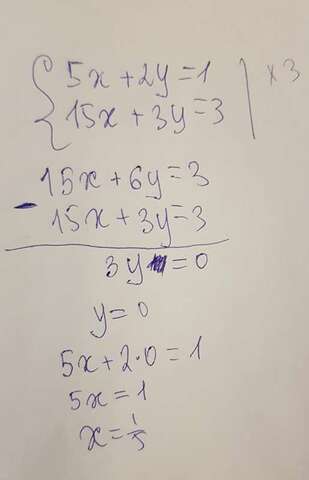 5x + 2y = 1 | × 3
15x + 3y = 3
15x + 6y = 3
- 15x + 3y = 3
3y = 0
y = 0
5x + 2·0 = 1
5x = 1
x = 1/5